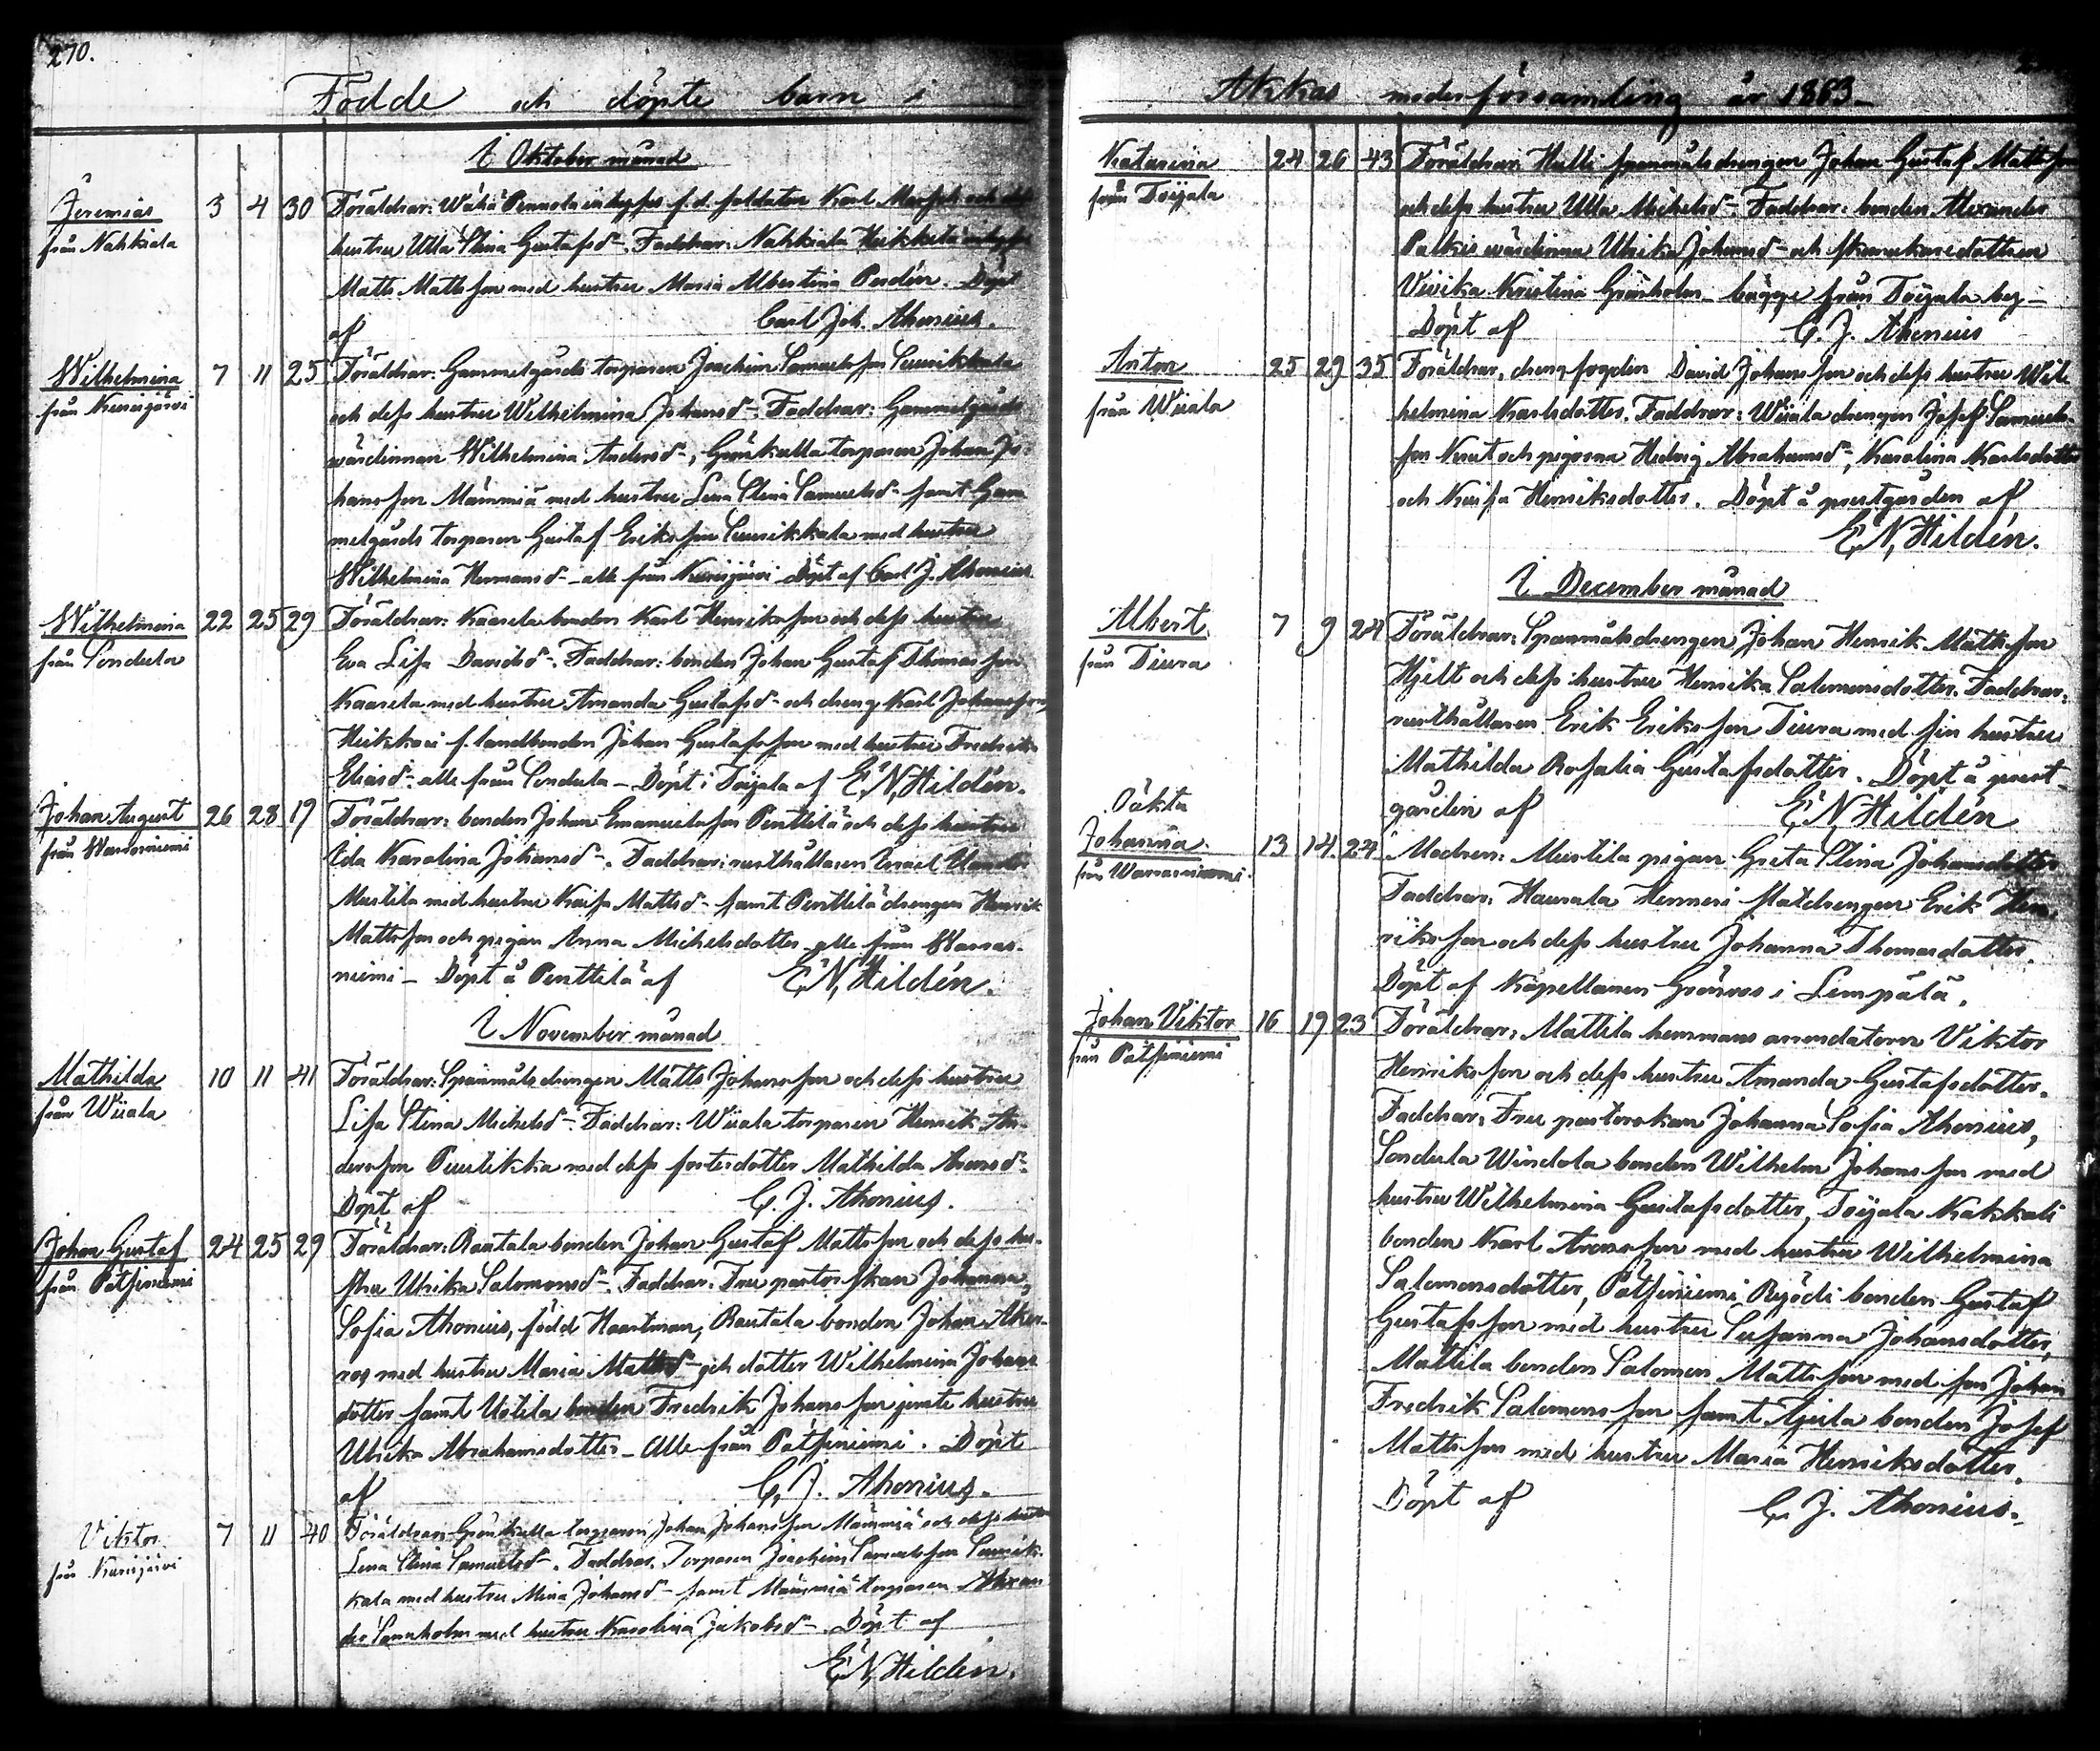 270.
Födde och döpte barn i
I Oktober månad
Jeremias 3 4 30 Föräldrar: Wäkä Pennola inhyses f. d. soldaten Karl och
från Nahkiala hustru Ulla Stina Gustafsd-. Faddrar: Nahkiala Heikkilä
Matts Mattsson med hustru Maria Albertina Perdén. Döpt
af Carl Joh. Ahonius.
Wilhelmina 7 11 25 Föräldrar: Gammelgårds torparen Joachim Samuelsson Sunikkala
från Kurisjärvi och dess hustru Wilhelmina Johansd-. Faddrar: Gammelgårds
wärdinnan Wilhelmina Andersd-, Grönkulla torparen Johan Jo-
hansson Mämmiä med hustru Lena Stina Samuelsd- samt Gam
melgårds torparen Gustaf Eriksson Sunikkala med hustru
Wilhelmina Hermansd- alle från Kurisjärvi Döpt af Carl J. Ahonius
Wilhelmina 22 25 29 Föräldrar: Kaarela bonden Karl Henriksson och dess hustru
från Sondula Eva Lisa Davidsd-. Faddrar: bonden Johan Gustaf Thomasson
Kaarela med hustru Amanda Gustafsd- och dreng Karl Johansson,
Heikkari f. landbonden Johan Gustafsson med hustru Fredrika
Eliasd- alle från Sondula – Döpt i Toijala af E. N. Hildén.
Johan August 26 28 19 Föräldrar: bonden Johan Emanuelsson Penttilä och dess hustru
från Warrasniemi Ida Karolina Johansd-. Faddrar: rusthållaren Israel
Mustila med hustru Kaisa Mattsd- samt Penttilä drengen Henrik
Mattsson och pigan Anna Michelsdotter alle från Warras-
niemi – Döpt å Penttilä af E. N. Hildén.
I November månad
Mathilda 10 11 41 Föräldrar: Spanmåls drengen Matts Johansson och dess hustru
från Wiiala Lisa Stina Michelsd-. Faddrar: Wiiala torparen Henrik An-
dersson Puulikka med dess fosterdotter Mathilda Aronsd-.
Döpt af C. J. Ahonius.
Johan Gustaf 24 25 29 Föräldrar: Rautala bonden Johan Gustaf Mattsson och dess hu-
från Pätsiniemi stru Ulrika Salomonsd-. Faddrar: Fru pastorskan Johanna
Sofia Ahonius, född Haartman, Rautala bonden Johan Aker-
ros med hustru Maria Mattsd- och dotter Wilhelmina Johans
dotter samt Uotila bonden Fredrik Johansson jemte hustru
Ulrika Abrahamsdotter – alle från Pätsiniemi. Döpt
af C. J. Ahonius.
Viktor 7 11 40 Föräldrar: Grönkulla torparen Johan Johansson Mämmiä och dess hustru
från Kurisjärvi Lena Stina Samuelsd-. Faddrar: Torparen Joachim Samuelsson Sunik-
kala med hustru Mina Johansd- samt Mämmiä torparen Alexan
der Sannholm med hustru Karolina Jakobsd-. Döpt af
E. N. Hildén.
Akkas moderförsamling år 1863–
Katarina 24 26 43 Föräldrar: Hulli spanmålsdrengen Johan Gustaf Mattsson
från Toijala och dess hustru Ulla Michelsd-. Faddrar: bonden Alexander
Palkis wärdinna Ulrika Johansd- och skareksredottren
Vivika Kristina Grönholm – bägge från Toijala by –
Döpt af C. J. Ahonius
Anton 25 29 35 Föräldrar, drengfogden David Johansson och dess hustru Wil
från Wiiala helmina Karlsdotter. Faddrar: Wiiala drengen Josef Samuels-
son Knut och pigorna Hedvig Abrahamsd-, Karolina Karlsdotter
och Kaisa Henriksdotter. Döpt å prestgården af
E. N. Hildén.
I December månad
Albert 7 9 24 Föräldrar: Spanmålsdrengen Johan Henrik Mattsson
från Tiura Hjelt och dess hustru Henrika Salomonsdotter. Faddrar:
rusthållaren Erik Eriksson Tiura med sin hustru
Mathilda Rosalia Gustafsdotter. Döpt å prest-
gården af E. N. Hildén
Oäkta
Johanna 13 14 24 Modren: Mustila pigan Greta Stina Johansdotter
från Warrasniemi. Faddrar: Haurala Henneri statdrengen Erik Hen-
riksson och dess hustru Johanna Thomasdotter.
Döpt af Kapellanen Grönroos i Lempälä.
Johan Viktor 16 19 23 Föräldrar: Mattila hemmans arrendatorn Viktor
från Pätsiniemi Henriksson och dess hustru Amanda Gustafsdotter.
Faddrar: Fru pastorskan Johanna Sofia Ahonius,
Sondula Windala bonden Wilhelm Johansson med
hustru Wilhelmina Gustafsdotter, Toijala Kakkuli
bonden Karl Aronsson med hustru Wilhelmina
Salomonsdotter, Pätsiniemi Ryödi bonden Gustaf
Gustafsson med hustru Susanna Johansdotter,
Mattila bonden Salomon Mattsson med son Johan
Fredrik Salomonsson samt Äjula bonden Josef
Mattsson med hustru Maria Henriksdotter.
Döpt af C. J. Ahonius.